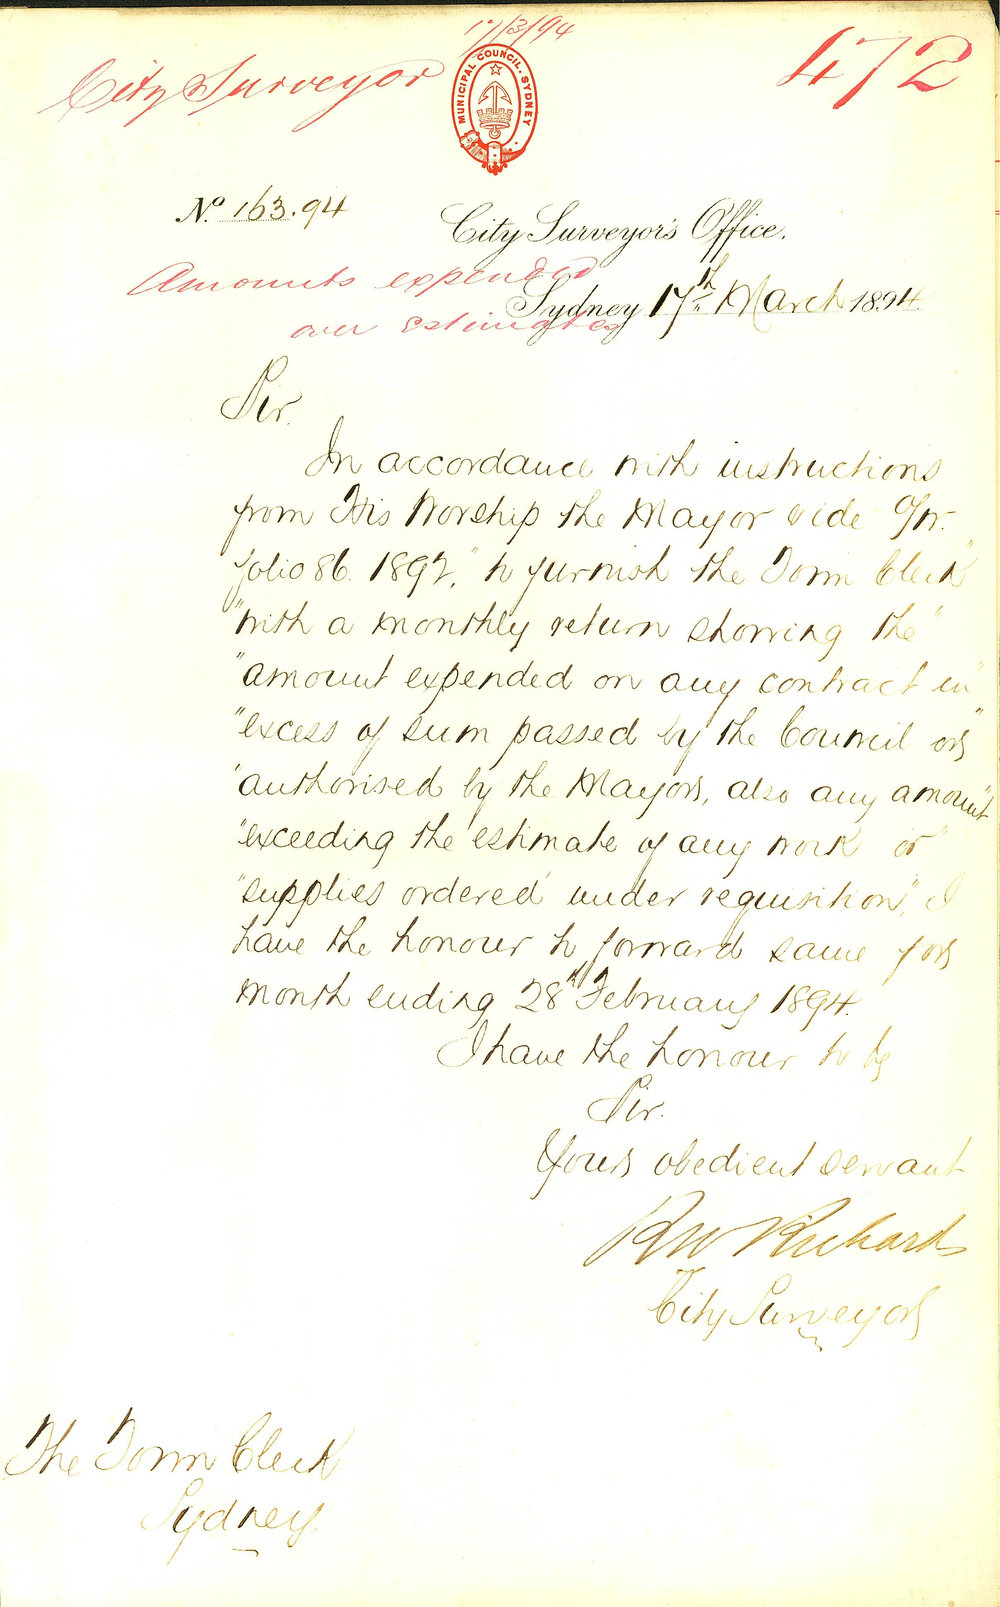 17/3/94
City Surveyor
472
MUNICIPAL COUNCIL. SYDNEY
No. 163.94
City Surveyor's Office.
Amounts expended
over estimates
Sydney 17th March 1894.
Sir.
In accordance with instructions
from His Worship the Mayor vide
folio 86. 1892, "to furnish the Town Clerk"
"with a monthly return showing the"
"amount expended on any contract in"
"excess of sum passed by the Council or"
"authorised by the Mayor, also any amount"
"exceeding the estimate of any work or"
"supplies ordered under requisition", I
have the honour to forward same for
month ending 28th February 1894.
I have the honour to be
Sir.
Your obedient servant
RW Richards
City Surveyor
The Town Clerk
Sydney